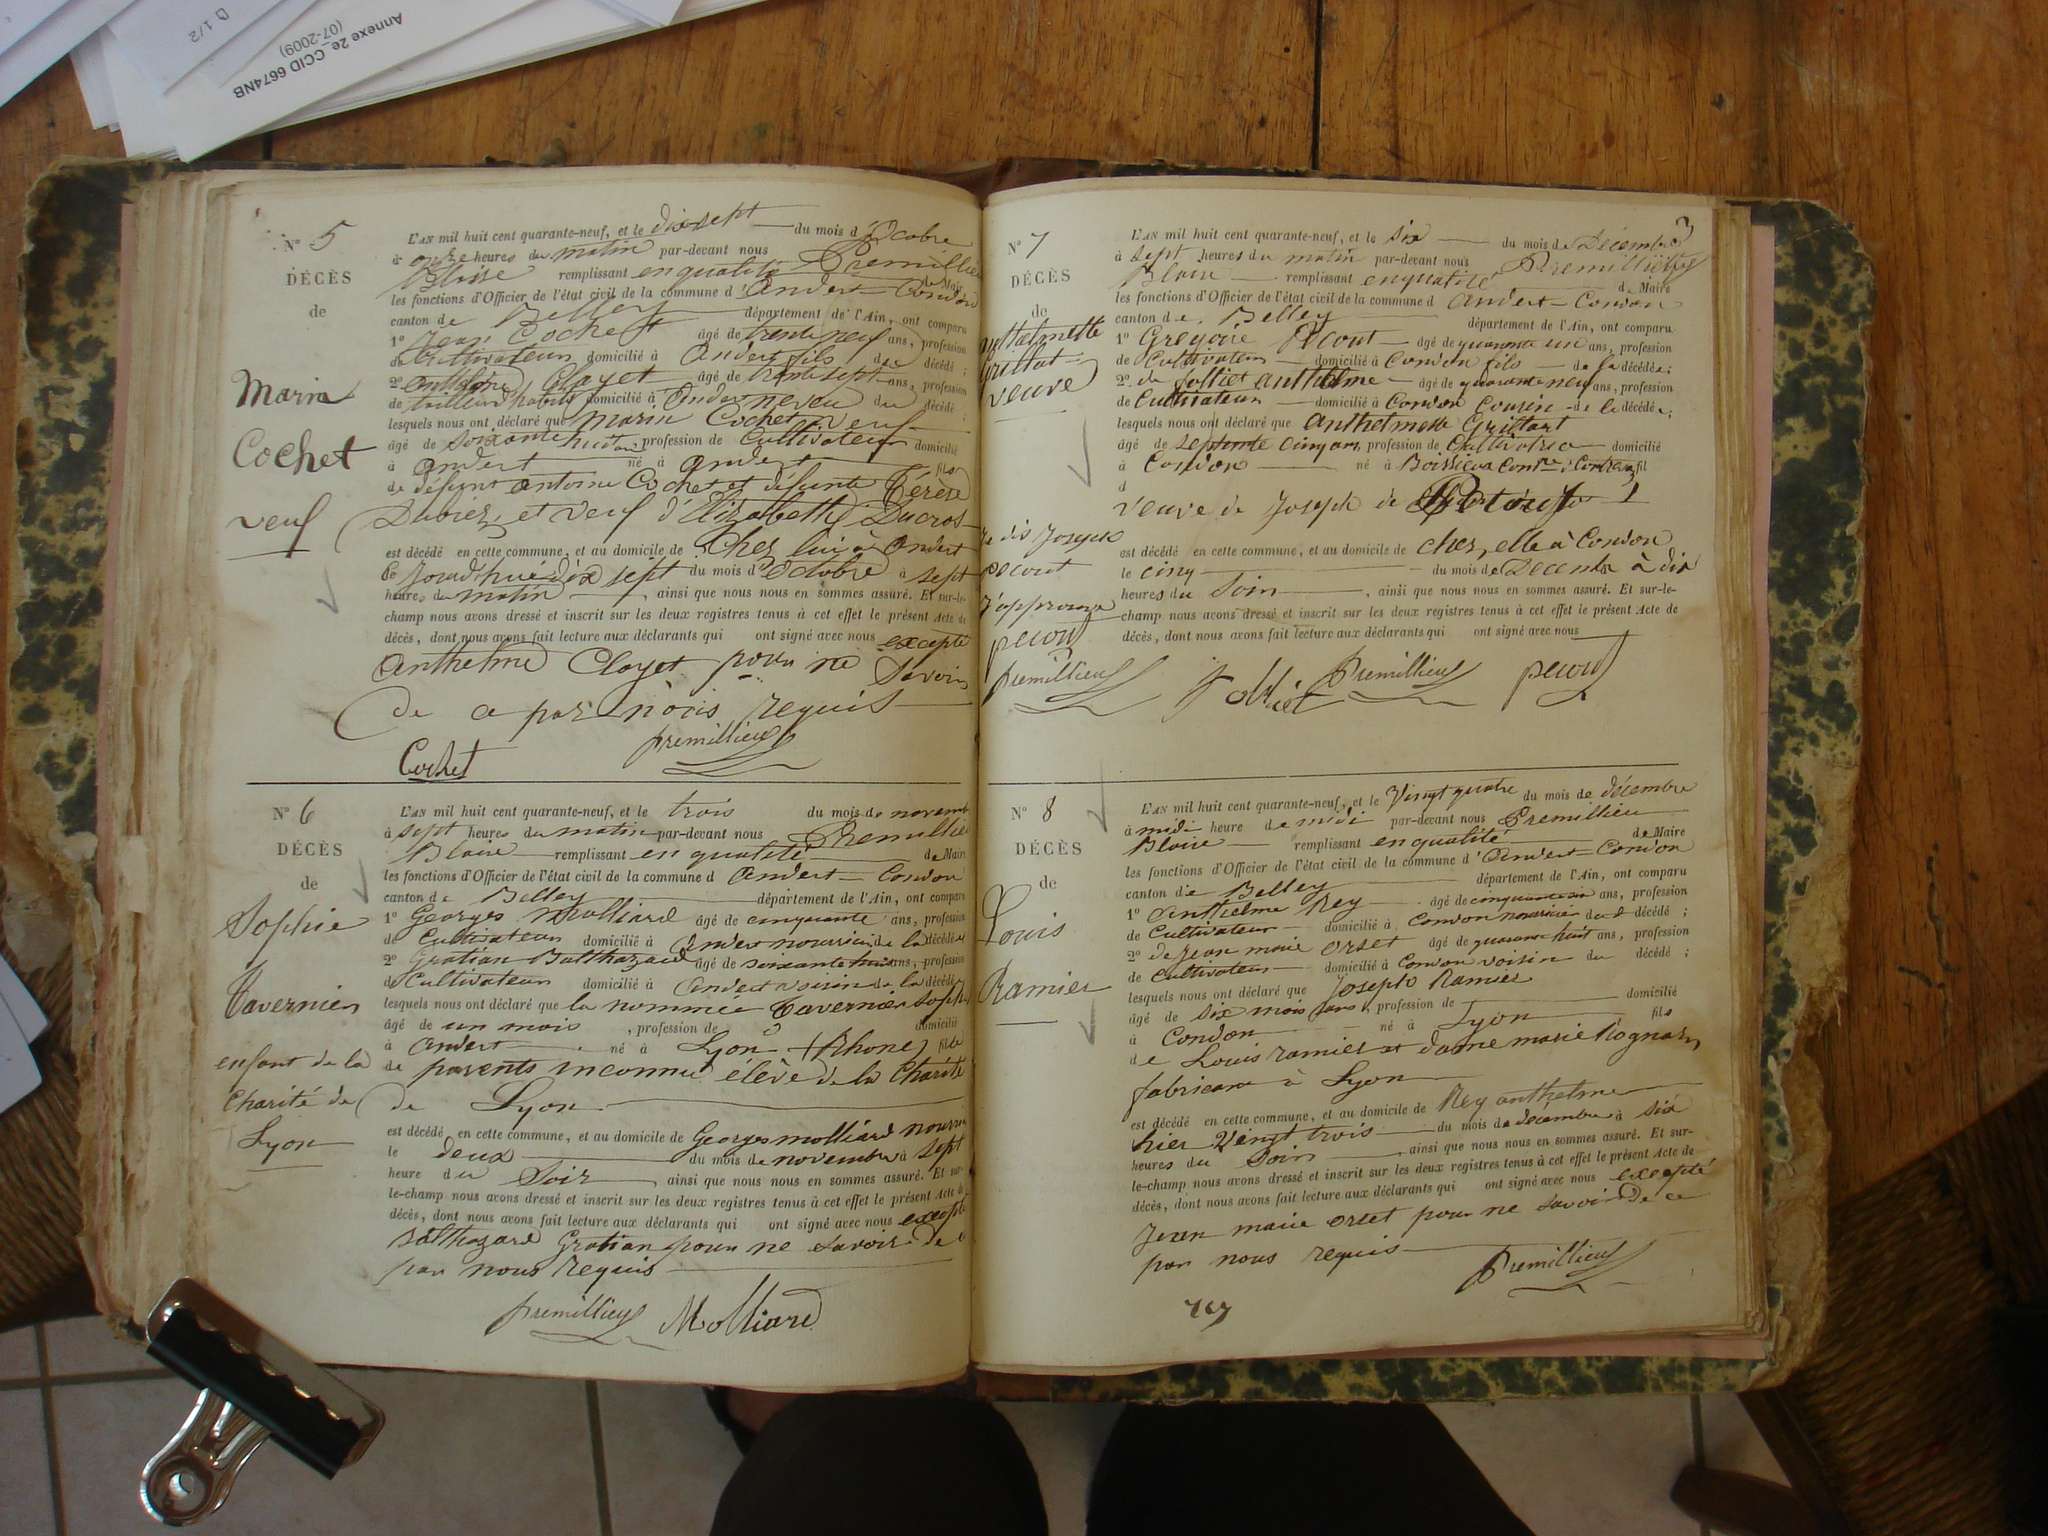 D 1/2
Annexe 2e_CCID 6674NB
(07-2009)
N° 5
DÉCÈS
de
Marin
Cochet
veuf
L'AN mil huit cent quarante-neuf, et le dix sept du mois d'Octobre
à onze heures du matin par-devant nous Premillieu
Blaise remplissant en qualité de Maire
les fonctions d'Officier de l'état civil de la commune d'Andert-Condon
canton de Belley département de l'Ain, ont comparu
1° Jean Cochet âgé de trente neuf ans, profession
de Cultivateur domicilié à Andert fils du décédé;
2° Anthelme Clayet âgé de trente sept ans, profession
de tailleur d'habits domicilié à Andert neveu du décédé;
lesquels nous ont déclaré que Marin Cochet veuf
âgé de soixante huit ans, profession de Cultivateur domicilié
à Andert né à Andert fils
de défunt antoine Cochet et défunte Térèse
Dubiez et veuf d'Elizabeth Ducros
est décédé en cette commune, et au domicile de Chez lui à Andert
le Jourd'hui dix sept du mois d'Octobre à sept
heures du matin, ainsi que nous nous en sommes assuré. Et sur-le-
champ nous avons dressé et inscrit sur les deux registres tenus à cet effet le présent Acte de
décès, dont nous avons fait lecture aux déclarants qui ont signé avec nous excepté
Anthelme Clayet pour ne savoir
de ce par nous requis
Cochet premillieu
N° 6
DÉCÈS
de
Sophie
Tavernier
enfant de la
Charité de
Lyon
L'AN mil huit cent quarante-neuf, et le trois du mois de novembre
à sept heures du matin par-devant nous Premillieu
Blaise remplissant en qualité de Maire
les fonctions d'Officier de l'état civil de la commune d Andert-Condon
canton de Belley département de l'Ain, ont comparu
1° Georges Molliard âgé de cinquante ans, profession
de Cultivateur domicilié à Andert nourricier de la décédée
2° Gratian Balthazard âgé de soixante huit ans, profession
de Cultivateur domicilié à Andert voisin de la décédée
lesquels nous ont déclaré que la nommée Tavernier Sophie
âgé de un mois, profession de domicilié
à Andert né à Lyon (Rhone) fille
de parents inconnu élève de la Charité
de Lyon
est décédé en cette commune, et au domicile de Georges molliard nourricier
le deux du mois de novembre à sept
heure du Soir ainsi que nous nous en sommes assuré. Et sur-
le-champ nous avons dressé et inscrit sur les deux registres tenus à cet effet le présent Acte de
décès, dont nous avons fait lecture aux déclarants qui ont signé avec nous excepté
Balthazard Gratian pour ne savoir de ce
par nous requis
premillieu Molliard
3
N° 7
DÉCÈS
de
anthelmette
Grillat
veuve
Je dis Joseph
pecout
J'approuve
pecout
premillieu
L'AN mil huit cent quarante-neuf, et le six du mois de Décembre
à sept heures du matin par-devant nous Premillieu
Blaise remplissant en qualité de Maire
les fonctions d'Officier de l'état civil de la commune d Andert-Condon
canton de Belley département de l'Ain, ont comparu
1° Gregoire Pecout âgé de quarante un ans, profession
de Cultivateur domicilié à Condon fils de la décédée;
2° de Jolliet Anthelme âgé de quarante neuf ans, profession
de Cultivateur domicilié à Condon Cousin de la décédée;
lesquels nous ont déclaré que Anthelmette Grillat
âgé de septante cinq ans, profession de Cultivatrice domicilié
à Condon né à Boissieux Conne: Contrevoz fil
d
veuve de Joseph de
est décédé en cette commune, et au domicile de chez elle à Condon
le cinq du mois de Décembre à dix
heures du Soir, ainsi que nous nous en sommes assuré. Et sur-le-
champ nous avons dressé et inscrit sur les deux registres tenus à cet effet le présent Acte de
décès, dont nous avons fait lecture aux déclarants qui ont signé avec nous
Jolliet Premillieu pecout
N° 8
DÉCÈS
de
Louis
Ramier
L'AN mil huit cent quarante-neuf, et le Vingt quatre du mois de décembre
à midi heure de midi par-devant nous Premillieu
Blaise remplissant en qualité de Maire
les fonctions d'Officier de l'état civil de la commune d'Andert-Condon
canton de Belley département de l'Ain, ont comparu
1° Anthelme Rey âgé de cinquante un ans, profession
de Cultivateur domicilié à Condon nourricier du décédé;
2° de Jean marie Orset âgé de quarante huit ans, profession
de Cultivateur domicilié à Condon voisin du décédé;
lesquels nous ont déclaré que Joseph Ramier
âgé de six mois ans, profession de domicilié
à Condon né à Lyon fils
de Louis ramier et dame marie Rognard
fabricant à Lyon
est décédé en cette commune, et au domicile de Rey anthelme
hier Vingt trois du mois de décembre à six
heures du Soir ainsi que nous nous en sommes assuré. Et sur-
le-champ nous avons dressé et inscrit sur les deux registres tenus à cet effet le présent Acte de
décès, dont nous avons fait lecture aux déclarants qui ont signé avec nous excepté
Jean marie orset pour ne savoir de ce
par nous requis
Premillieu